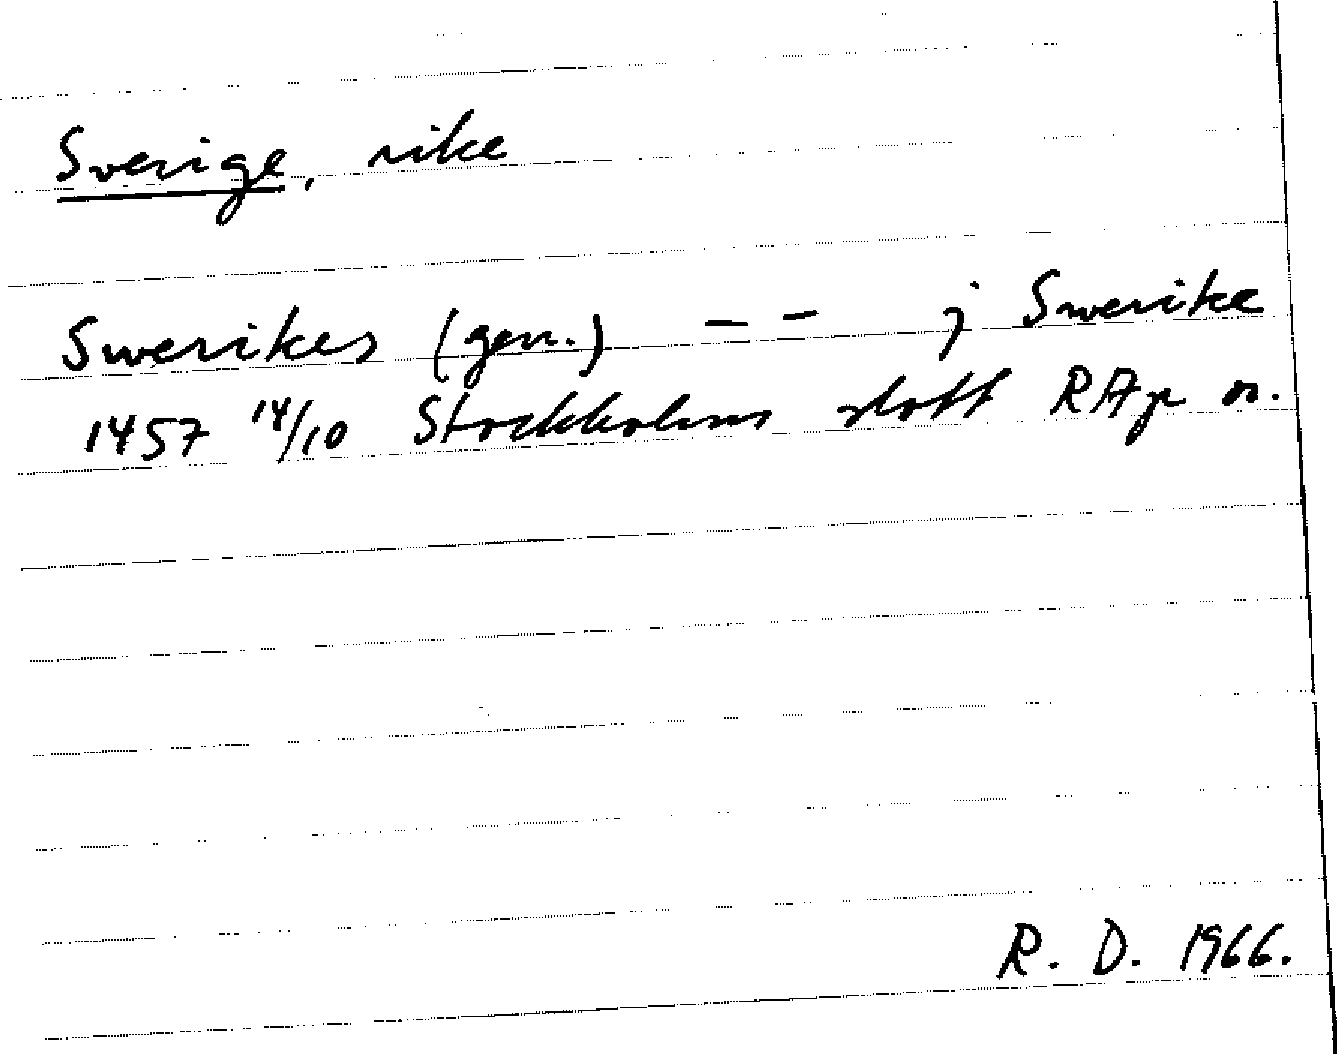 Sverige, rike
Swerikes (gen.) – – j Swerike
1457 14/10 Stockholms slott RAp or.
R. D. 1966.